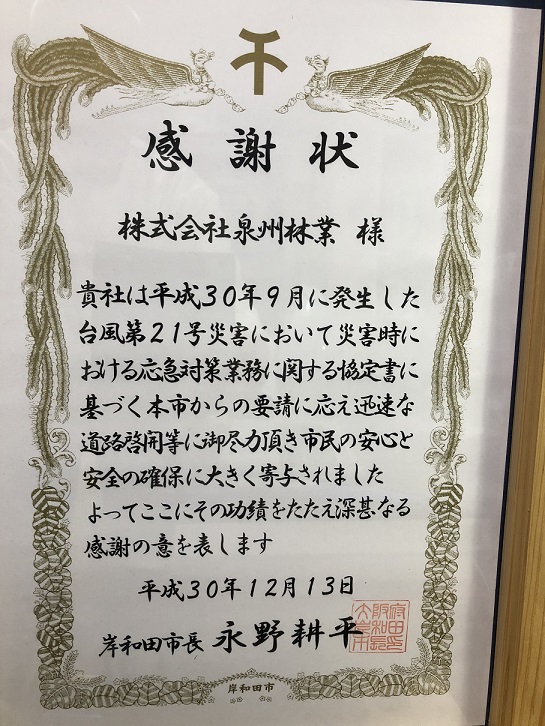 感謝状
株式会社泉州林業 様
貴社は平成30年9月に発生した
台風第21号災害において災害時に
おける応急対策業務に関する協定書に
基づく本市からの要請に応え迅速な
道路啓開等に御尽力頂き市民の安心と
安全の確保に大きく寄与されました
よってここにその功績をたたえ深甚なる
感謝の意を表します
平成30年12月13日
岸和田市長 永野耕平
岸和田市